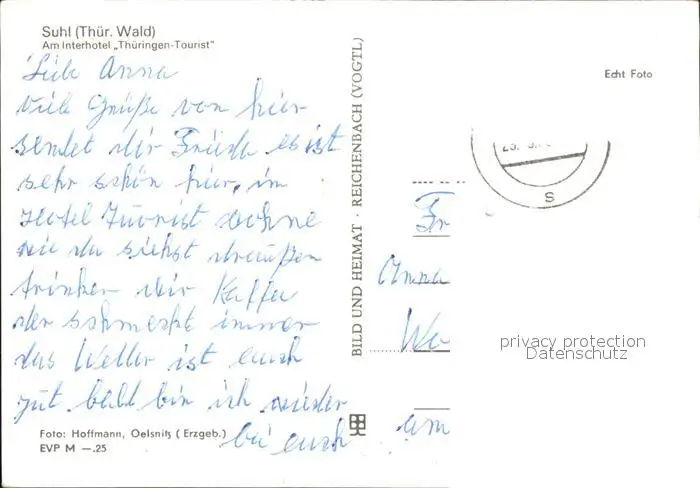 Suhl (Thür. Wald)
Am Interhotel „Thüringen-Tourist"
Echt Foto
Liebe Anna
viele Grüße von hier
sendet dir Frieda es ist
sehr schön hier, im
Hotel Tourist wohne
wie du siehst draußen
trinken wir Kaffee
der schmeckt immer
das Wetter ist auch
gut bald bin ich wieder
bei euch
BILD UND HEIMAT · REICHENBACH (VOGTL)
S
Fr
Anna
We
am
privacy protection
Datenschutz
Foto: Hoffmann, Oelsnitz (Erzgeb.)
EVP M —.25